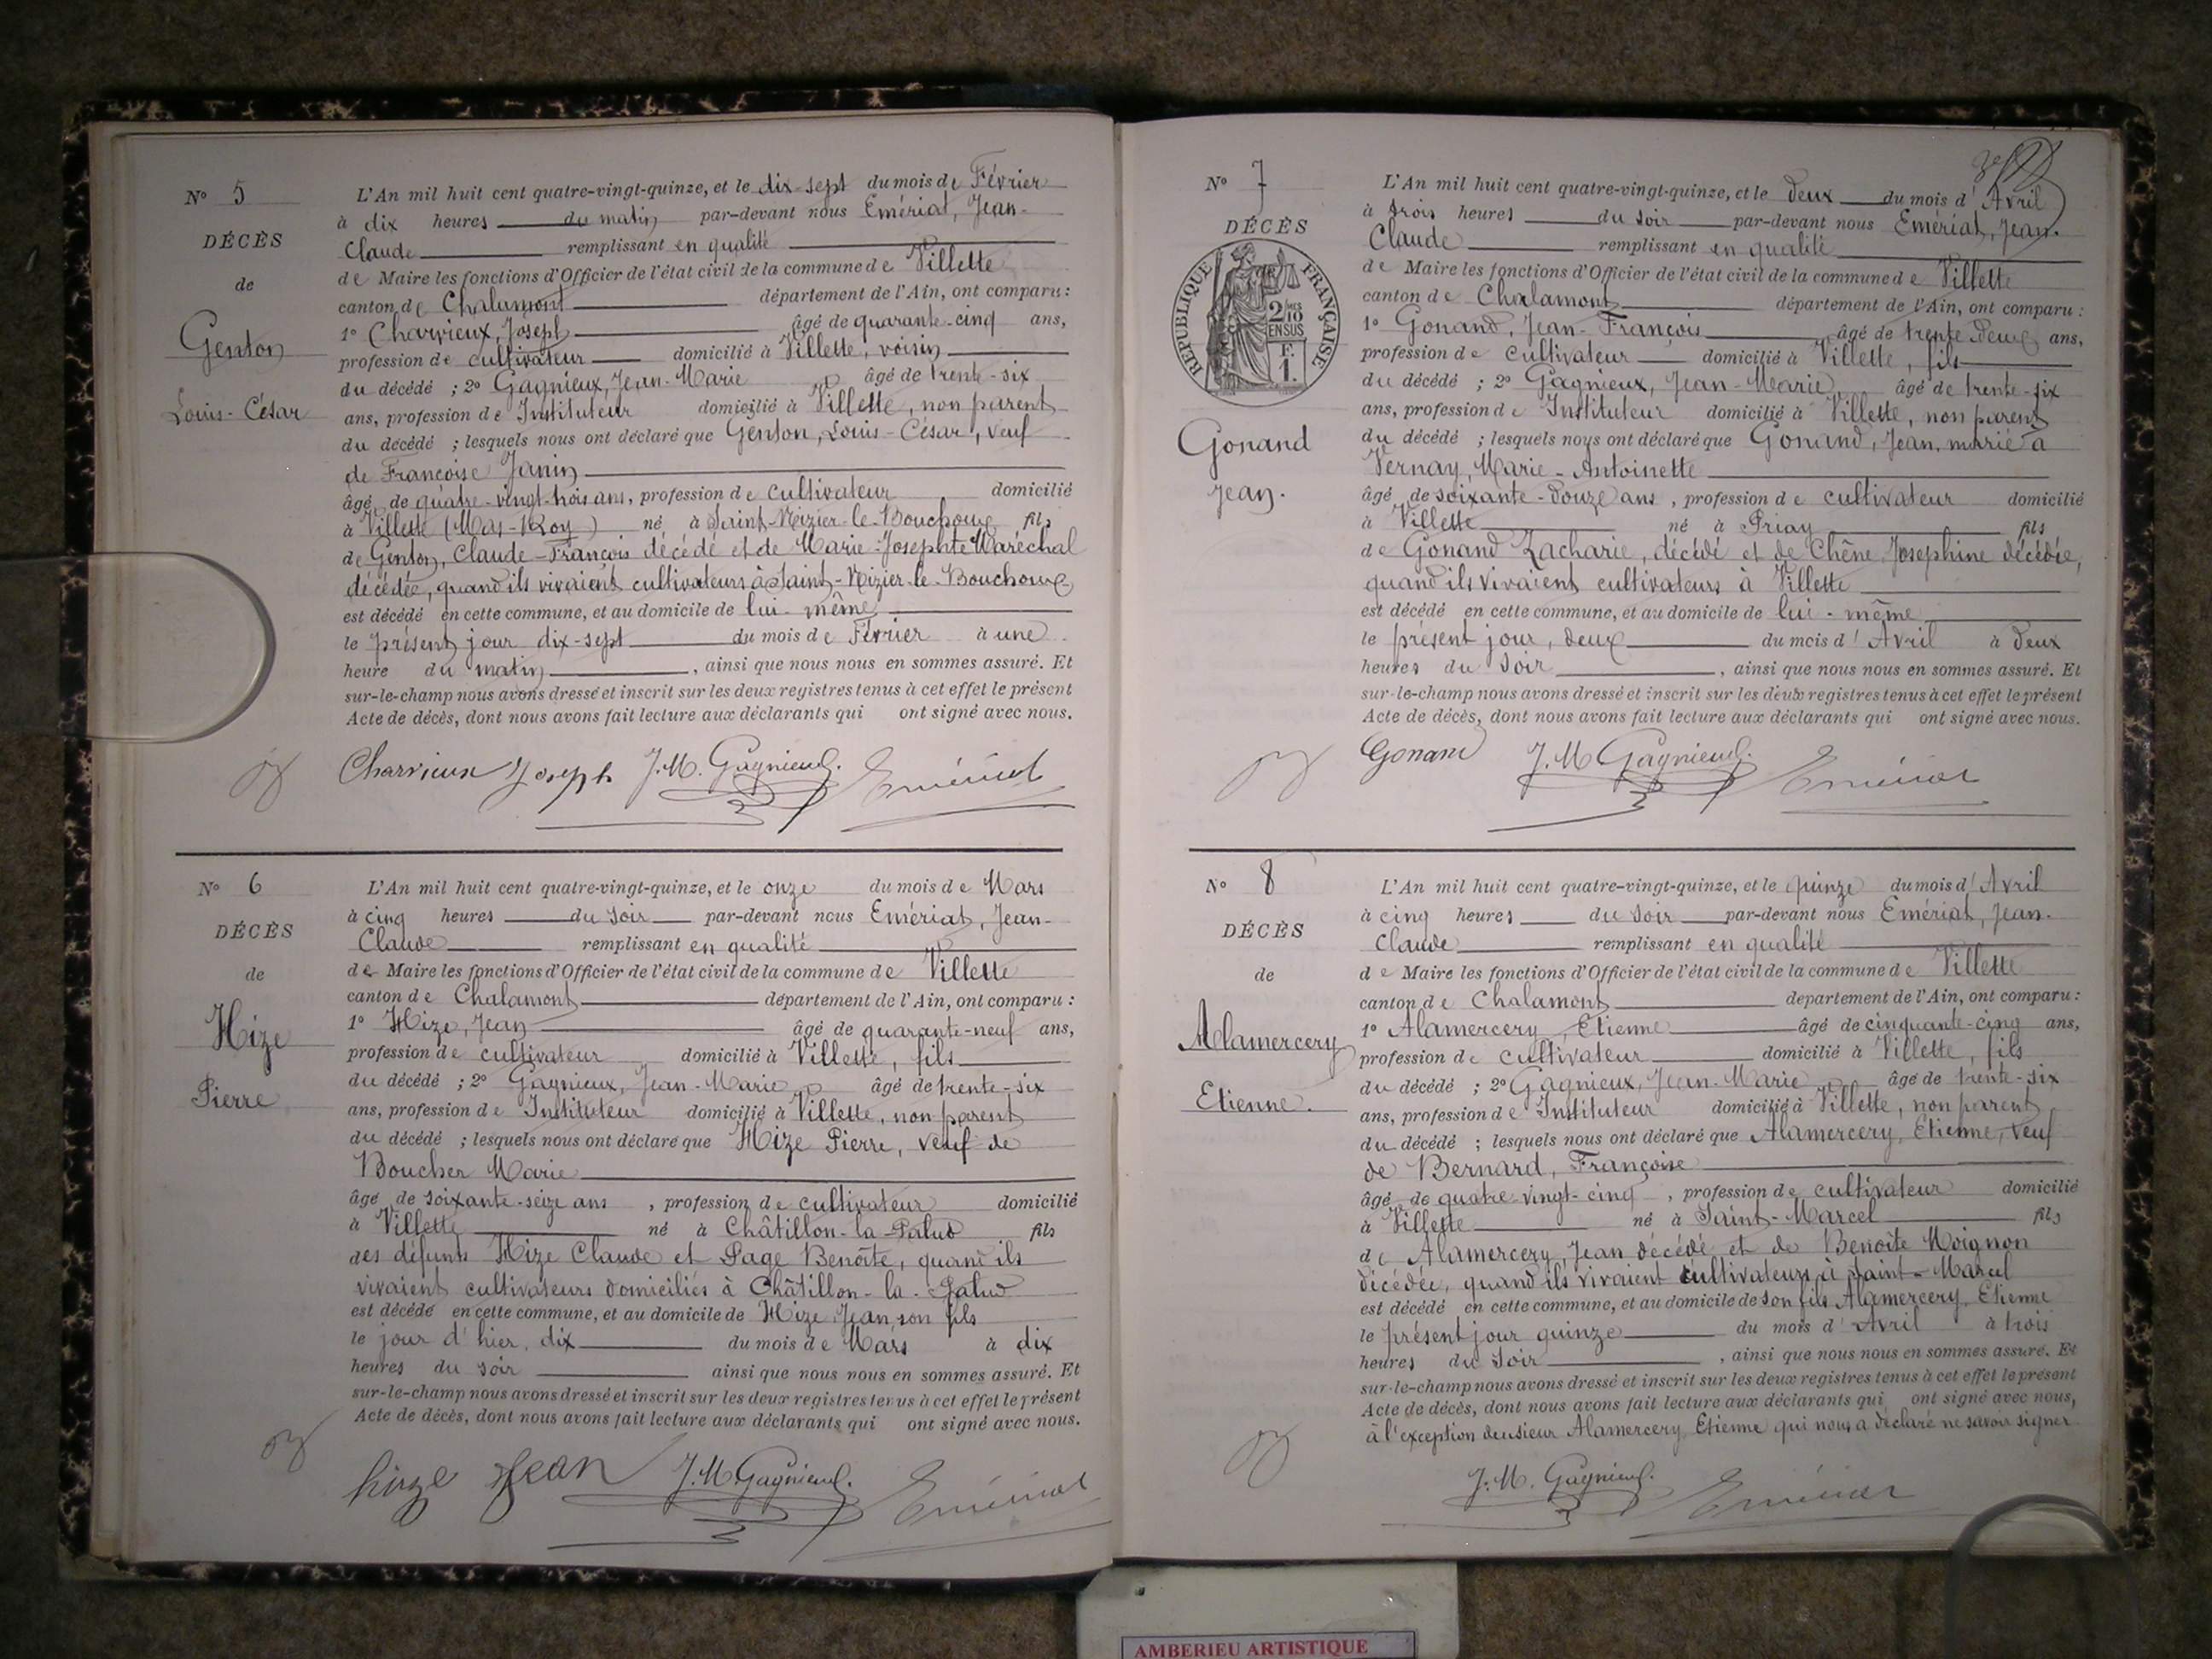 N° 5
DÉCÈS
de
Genton
Louis-César
L'An mil huit cent quatre-vingt-quinze, et le dix-sept du mois de Février
à dix heures du matin par-devant nous Emériat, Jean-
Claude remplissant en qualité
de Maire les fonctions d'Officier de l'état civil de la commune de Villette
canton de Chalamont département de l'Ain, ont comparu :
1° Charvieux, Joseph âgé de quarante-cinq ans,
profession de cultivateur domicilié à Villette, voisin
du décédé ; 2° Gagnieux, Jean-Marie âgé de trente-six
ans, profession de Instituteur domicilié à Villette, non parent
du décédé ; lesquels nous ont déclaré que Genton, Louis-César, veuf
de Françoise Janin
âgé de quatre-vingt-trois ans, profession de cultivateur domicilié
à Villette (Mas-Roy) né à Saint-Nizier-le-Bouchoux fils
de Genton, Claude-François décédé et de Marie-Josephte Maréchal
décédée, quand ils vivaient cultivateurs à Saint-Nizier-le-Bouchoux
est décédé en cette commune, et au domicile de lui-même
le présent jour dix-sept du mois de Février à une
heure du matin, ainsi que nous nous en sommes assuré. Et
sur-le-champ nous avons dressé et inscrit sur les deux registres tenus à cet effet le présent
Acte de décès, dont nous avons fait lecture aux déclarants qui ont signé avec nous.
Charvieux Joseph J.M. Gagnieux. Emériat
N° 6
DÉCÈS
de
Hize
Pierre
L'An mil huit cent quatre-vingt-quinze, et le onze du mois de Mars
à cinq heures du soir par-devant nous Emériat, Jean-
Claude remplissant en qualité
de Maire les fonctions d'Officier de l'état civil de la commune de Villette
canton de Chalamont département de l'Ain, ont comparu :
1° Hize, Jean âgé de quarante-neuf ans,
profession de cultivateur domicilié à Villette, fils
du décédé ; 2° Gagnieux, Jean-Marie âgé de trente-six
ans, profession de Instituteur domicilié à Villette, non parent
du décédé ; lesquels nous ont déclaré que Hize Pierre, veuf de
Boucher Marie
âgé de soixante-seize ans, profession de cultivateur domicilié
à Villette né à Châtillon-la-Palud fils
des défunts Hize Claude et Page Benoîte, quand ils
vivaient cultivateurs domiciliés à Châtillon-la-Palud
est décédé en cette commune, et au domicile de Hize Jean, son fils
le jour d'hier, dix du mois de Mars à dix
heures du soir ainsi que nous nous en sommes assuré. Et
sur-le-champ nous avons dressé et inscrit sur les deux registres tenus à cet effet le présent
Acte de décès, dont nous avons fait lecture aux déclarants qui ont signé avec nous.
hize Jean J.M. Gagnieux. Emériat
N° 7
DÉCÈS
REPUBLIQUE FRANÇAISE
2/10 EN SUS
F. 1.
Gonand
Jean.
L'An mil huit cent quatre-vingt-quinze, et le deux du mois d'Avril
à trois heures du soir par-devant nous Emériat, Jean-
Claude remplissant en qualité
de Maire les fonctions d'Officier de l'état civil de la commune de Villette
canton de Chalamont département de l'Ain, ont comparu :
1° Gonand, Jean-François âgé de trente-deux ans,
profession de cultivateur domicilié à Villette, fils
du décédé ; 2° Gagnieux, Jean-Marie âgé de trente-six
ans, profession de Instituteur domicilié à Villette, non parent
du décédé ; lesquels nous ont déclaré que Gonand, Jean, marié à
Vernay, Marie-Antoinette
âgé de soixante-douze ans, profession de cultivateur domicilié
à Villette né à Priay fils
de Gonand Zacharie, décédé et de Chêne Josephine décédée,
quand ils vivaient cultivateurs à Villette
est décédé en cette commune, et au domicile de lui-même
le présent jour, deux du mois d'Avril à deux
heures du soir, ainsi que nous nous en sommes assuré. Et
sur-le-champ nous avons dressé et inscrit sur les deux registres tenus à cet effet le présent
Acte de décès, dont nous avons fait lecture aux déclarants qui ont signé avec nous.
Gonand J.M Gagnieux. Emériat
N° 8
DÉCÈS
de
Alamercery
Etienne.
L'An mil huit cent quatre-vingt-quinze, et le quinze du mois d'Avril
à cinq heures du soir par-devant nous Emériat, Jean-
Claude remplissant en qualité
de Maire les fonctions d'Officier de l'état civil de la commune de Villette
canton de Chalamont département de l'Ain, ont comparu :
1° Alamercery, Etienne âgé de cinquante-cinq ans,
profession de cultivateur domicilié à Villette, fils
du décédé ; 2° Gagnieux, Jean-Marie âgé de trente-six
ans, profession de Instituteur domicilié à Villette, non parent
du décédé ; lesquels nous ont déclaré que Alamercery, Etienne, veuf
de Bernard, Françoise
âgé de quatre-vingt-cinq, profession de cultivateur domicilié
à Villette né à Saint-Marcel fils
de Alamercery, Jean décédé et de Benoîte Moignon
décédée, quand ils vivaient cultivateurs à Saint-Marcel
est décédé en cette commune, et au domicile de son fils Alamercery, Etienne
le présent jour quinze du mois d'Avril à trois
heures du soir, ainsi que nous nous en sommes assuré. Et
sur-le-champ nous avons dressé et inscrit sur les deux registres tenus à cet effet le présent
Acte de décès, dont nous avons fait lecture aux déclarants qui ont signé avec nous,
à l'exception du sieur Alamercery, Etienne qui nous a déclaré ne savoir signer
J.M. Gagnieux. Emériat
AMBERIEU ARTISTIQUE